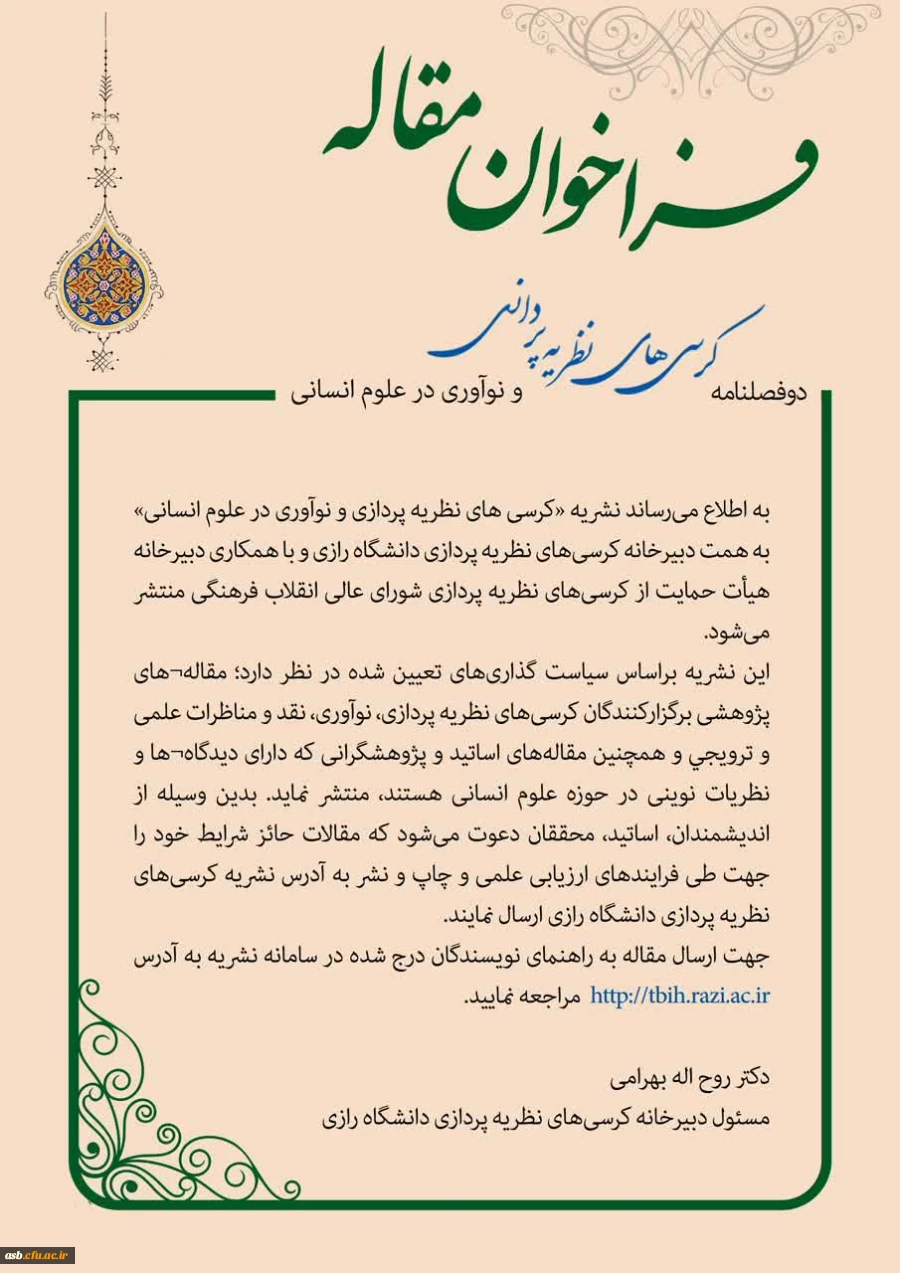 فراخوان مقاله
دوفصلنامه کرسی‌های نظریه‌پردازی و نوآوری در علوم انسانی
به اطلاع می‌رساند نشریه «کرسی های نظریه پردازی و نوآوری در علوم انسانی»
به همت دبیرخانه کرسی‌های نظریه پردازی دانشگاه رازی و با همکاری دبیرخانه
هیأت حمایت از کرسی‌های نظریه پردازی شورای عالی انقلاب فرهنگی منتشر
می‌شود.
این نشریه براساس سیاست گذاری‌های تعیین شده در نظر دارد؛ مقاله¬های
پژوهشی برگزارکنندگان کرسی‌های نظریه پردازی، نوآوری، نقد و مناظرات علمی
و ترویجي و همچنین مقاله‌های اساتید و پژوهشگرانی که دارای دیدگاه¬ها و
نظریات نوینی در حوزه علوم انسانی هستند، منتشر نماید. بدین وسیله از
اندیشمندان، اساتید، محققان دعوت می‌شود که مقالات حائز شرایط خود را
جهت طی فرایندهای ارزیابی علمی و چاپ و نشر به آدرس نشریه کرسی‌های
نظریه پردازی دانشگاه رازی ارسال نمایند.
جهت ارسال مقاله به راهنمای نویسندگان درج شده در سامانه نشریه به آدرس
http://tbih.razi.ac.ir مراجعه نمایید.
دکتر روح اله بهرامی
مسئول دبیرخانه کرسی‌های نظریه پردازی دانشگاه رازی
asb.cfu.ac.ir